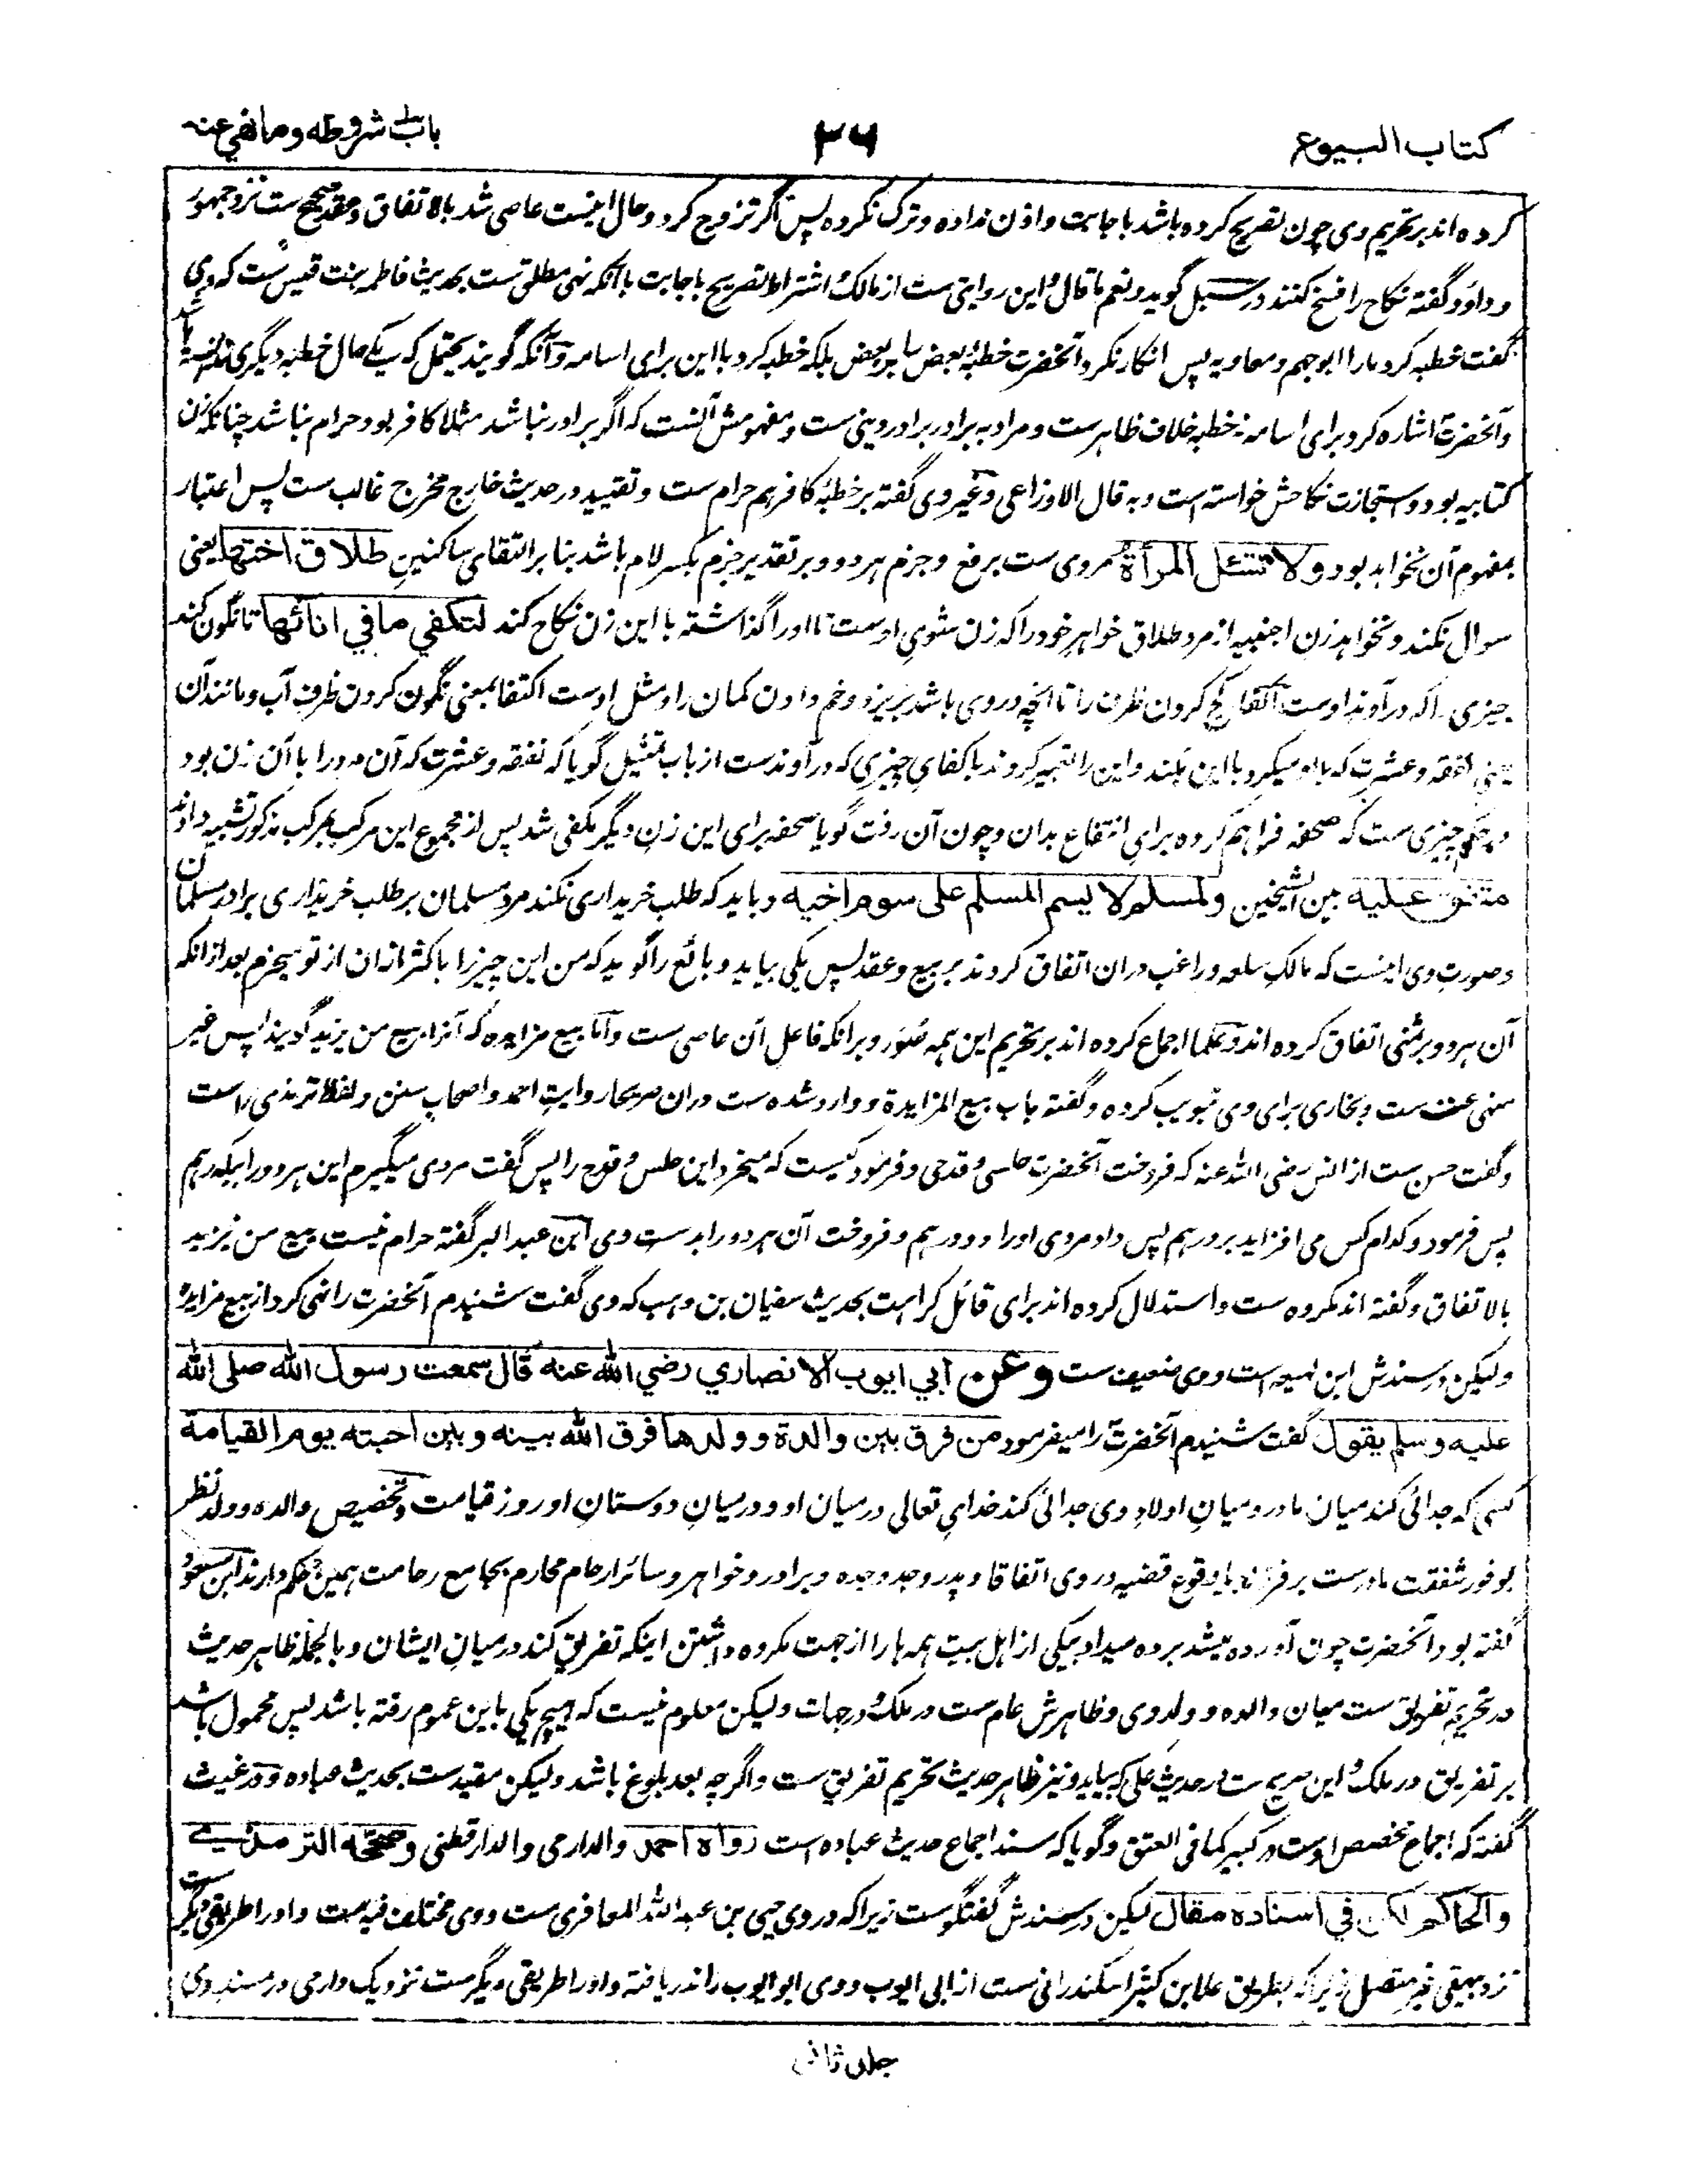 كتاب البيوع
۳۶
باب شروطه وما نهي عنه
کرده اند بر تحریم وی چون تصریح کرده باشد باجابت و اذن نداده و ترک نکرده پس اگر تزوج کرد و حال اینست عاصی شد بالاتفاق و عقد صحیح ست نزد جمهور
و داود گفته نکاح را فسخ کنند در سبل گوید و نعم ما قال و این روایتی ست از مالک و اشتراط تصریح باجابت با آنکه نهی مطلق ست بحدیث فاطمه بنت قیس ست که وی
گفت خطبه کرد مارا ابوجهم و معاویه پس انکار نکرد آنحضرت خطبهٔ بعض را بر بعض بلکه خطبه کرد با این برای اسامه و آنکه گویند یحتمل که یکی حال خطبه دیگری ندانسته باشد
و آنحضرت اشاره کرد برای اسامه نه خطبه خلاف ظاهرست و مراد به برادر برادر دینی ست و مفهومش آنست که اگر برادر نباشد مثلا کافر بود حرام نباشد چنانکه زن
کتابیه بود و استجازت نکاحش خواسته است و به قال الاوزاعی و غیر وی گفته بر خطبهٔ کافر هم حرام ست و تقیید در حدیث خارج مخرج غالب ست پس اعتبار
بمفهوم آن نخواهد بود ولا تسئل المرأة مروی ست برفع و جزم هر دو و بر تقدیر جزم بکسر لام باشد بنا بر التقای ساکنین طلاق اختها یعنی
سوال نکند و نخواهد زن اجنبیه از مرد طلاق خواهر خود را که زن شوی اوست تا او را گذاشته با این زن نکاح کند لتكفي ما في انائها تا نگون کند
چیزی را که در آوند اوست اکفا کج کردن ظرف را تا آنچه در وی باشد بریزد و خم دادن کمان را و مثل اوست اکتفا بمعنی نگون کردن ظرف آب و مانند آن
یعنی نفقه و عشرت که با او میکرد با این بکند و این را تعبیر کردند باکفای چیزی که در آوندست از باب تمثیل گویا که نفقه و عشرت که آن مرد را با آن زن بود
در حکم چیزی ست که صحفه فراهم کرده برای انتفاع بدان و چون آن رفت گویا صحفه برای این زن دیگر مکفی شد پس از مجموع این مرکب بمرکب مذکور تشبیه دادند
متفق عليه بین الشیخین ولمسلم لا يسم المسلم على سوم اخيه و باید که طلب خریداری نکند مرد مسلمان بر طلب خریداری برادر مسلمان
و صورت وی اینست که مالک سلعه و راغب دران اتفاق کردند بر بیع و عقد پس یکی بیاید و بائع را گوید که من این چیز را باکثر ازان از تو میخرم بعد ازانکه
آن هر دو بر ثمنی اتفاق کرده اند و علما اجماع کرده اند بر تحریم این همه صُوَر و برانکه فاعل آن عاصی ست و اما بیع مزایده که آنرا بیع من یزید گویند پس غیر
منهی عنه ست و بخاری برای وی تبویب کرده و گفته باب بیع المزایدة و وارد شده ست دران صریحا روایت احمد و اصحاب سنن و لفظ ترمذی راست
و گفت حسن ست از انس رضی الله عنه که فروخت آنحضرت حلسی و قدحی و فرمود کیست که میخرد این حلس و قدح را پس گفت مردی میگیرم این هر دو را بیکدرهم
پس فرمود و کدام کس می افزاید بر درهم پس داد مردی او را دو درهم و فروخت آن هر دو را بدست وی ابن عبد البر گفته حرام نیست بیع من یزید
بالاتفاق و گفته اند مکروه ست و استدلال کرده اند برای قائل کراهت بحدیث سفیان بن وهب که وی گفت شنیدم آنحضرت را نهی کرد از بیع مزایده
ولیکن در سندش ابن لهیعه است و وی ضعیف ست وعن ابي ايوب الانصاري رضي الله عنه قال سمعت رسول الله صلى الله
عليه وسلم يقول گفت شنیدم آنحضرت را میفرمود من فرق بين والدة وولدها فرق الله بينه وبين احبته يوم القيامة
کسی که جدائی کند میان مادر و میان اولاد وی جدائی کند خدای تعالی در میان او و در میان دوستان او روز قیامت و تخصیص والده و ولد نظر
بوفور شفقت مادرست بر فرزند یا وقوع قضیه در وی اتفاقا و پدر و جد و جده و برادر و خواهر و سائر ارحام محارم بجامع رحامت همین حکم دارند ابن مسعود
گفته بود آنحضرت چون آورده میشد برده میداد بیکی از اهل بیت همه ها را از جهت مکروه داشتن اینکه تفریق کند در میان ایشان و بالجمله ظاهر حدیث
در تحریم تفریق ست میان والده و ولد وی و ظاهرش عام ست در ملک و جهات ولیکن معلوم نیست که هیچ یکی باین عموم رفته باشد پس محمول باشد
بر تفریق در ملک و این صریح ست در حدیث علی که بیاید و نیز ظاهر حدیث تحریم تفریق ست و اگرچه بعد بلوغ باشد ولیکن مقیدست بحدیث عباده و در غیث
گفته که اجماع مخصص اوست در کبیر کما فی العتق و گویا که سند اجماع حدیث عباده است رواه احمد والدارمی والدارقطنی وصححه الترمذي
والحاكم لكن في اسناده مقال لیکن در سندش گفتگوست زیرا که در وی حیی بن عبد الله المعافری ست و وی مختلف فیه ست و او را طریقی دیگر ست
نزد بیهقی غیر متصل زیرا که بطریق علا بن کثیر اسکندرانی ست از ابی ایوب و وی ابو ایوب را ندریافته و او را طریقی دیگرست نزدیک دارمی در مسند وی
جلد ثانی